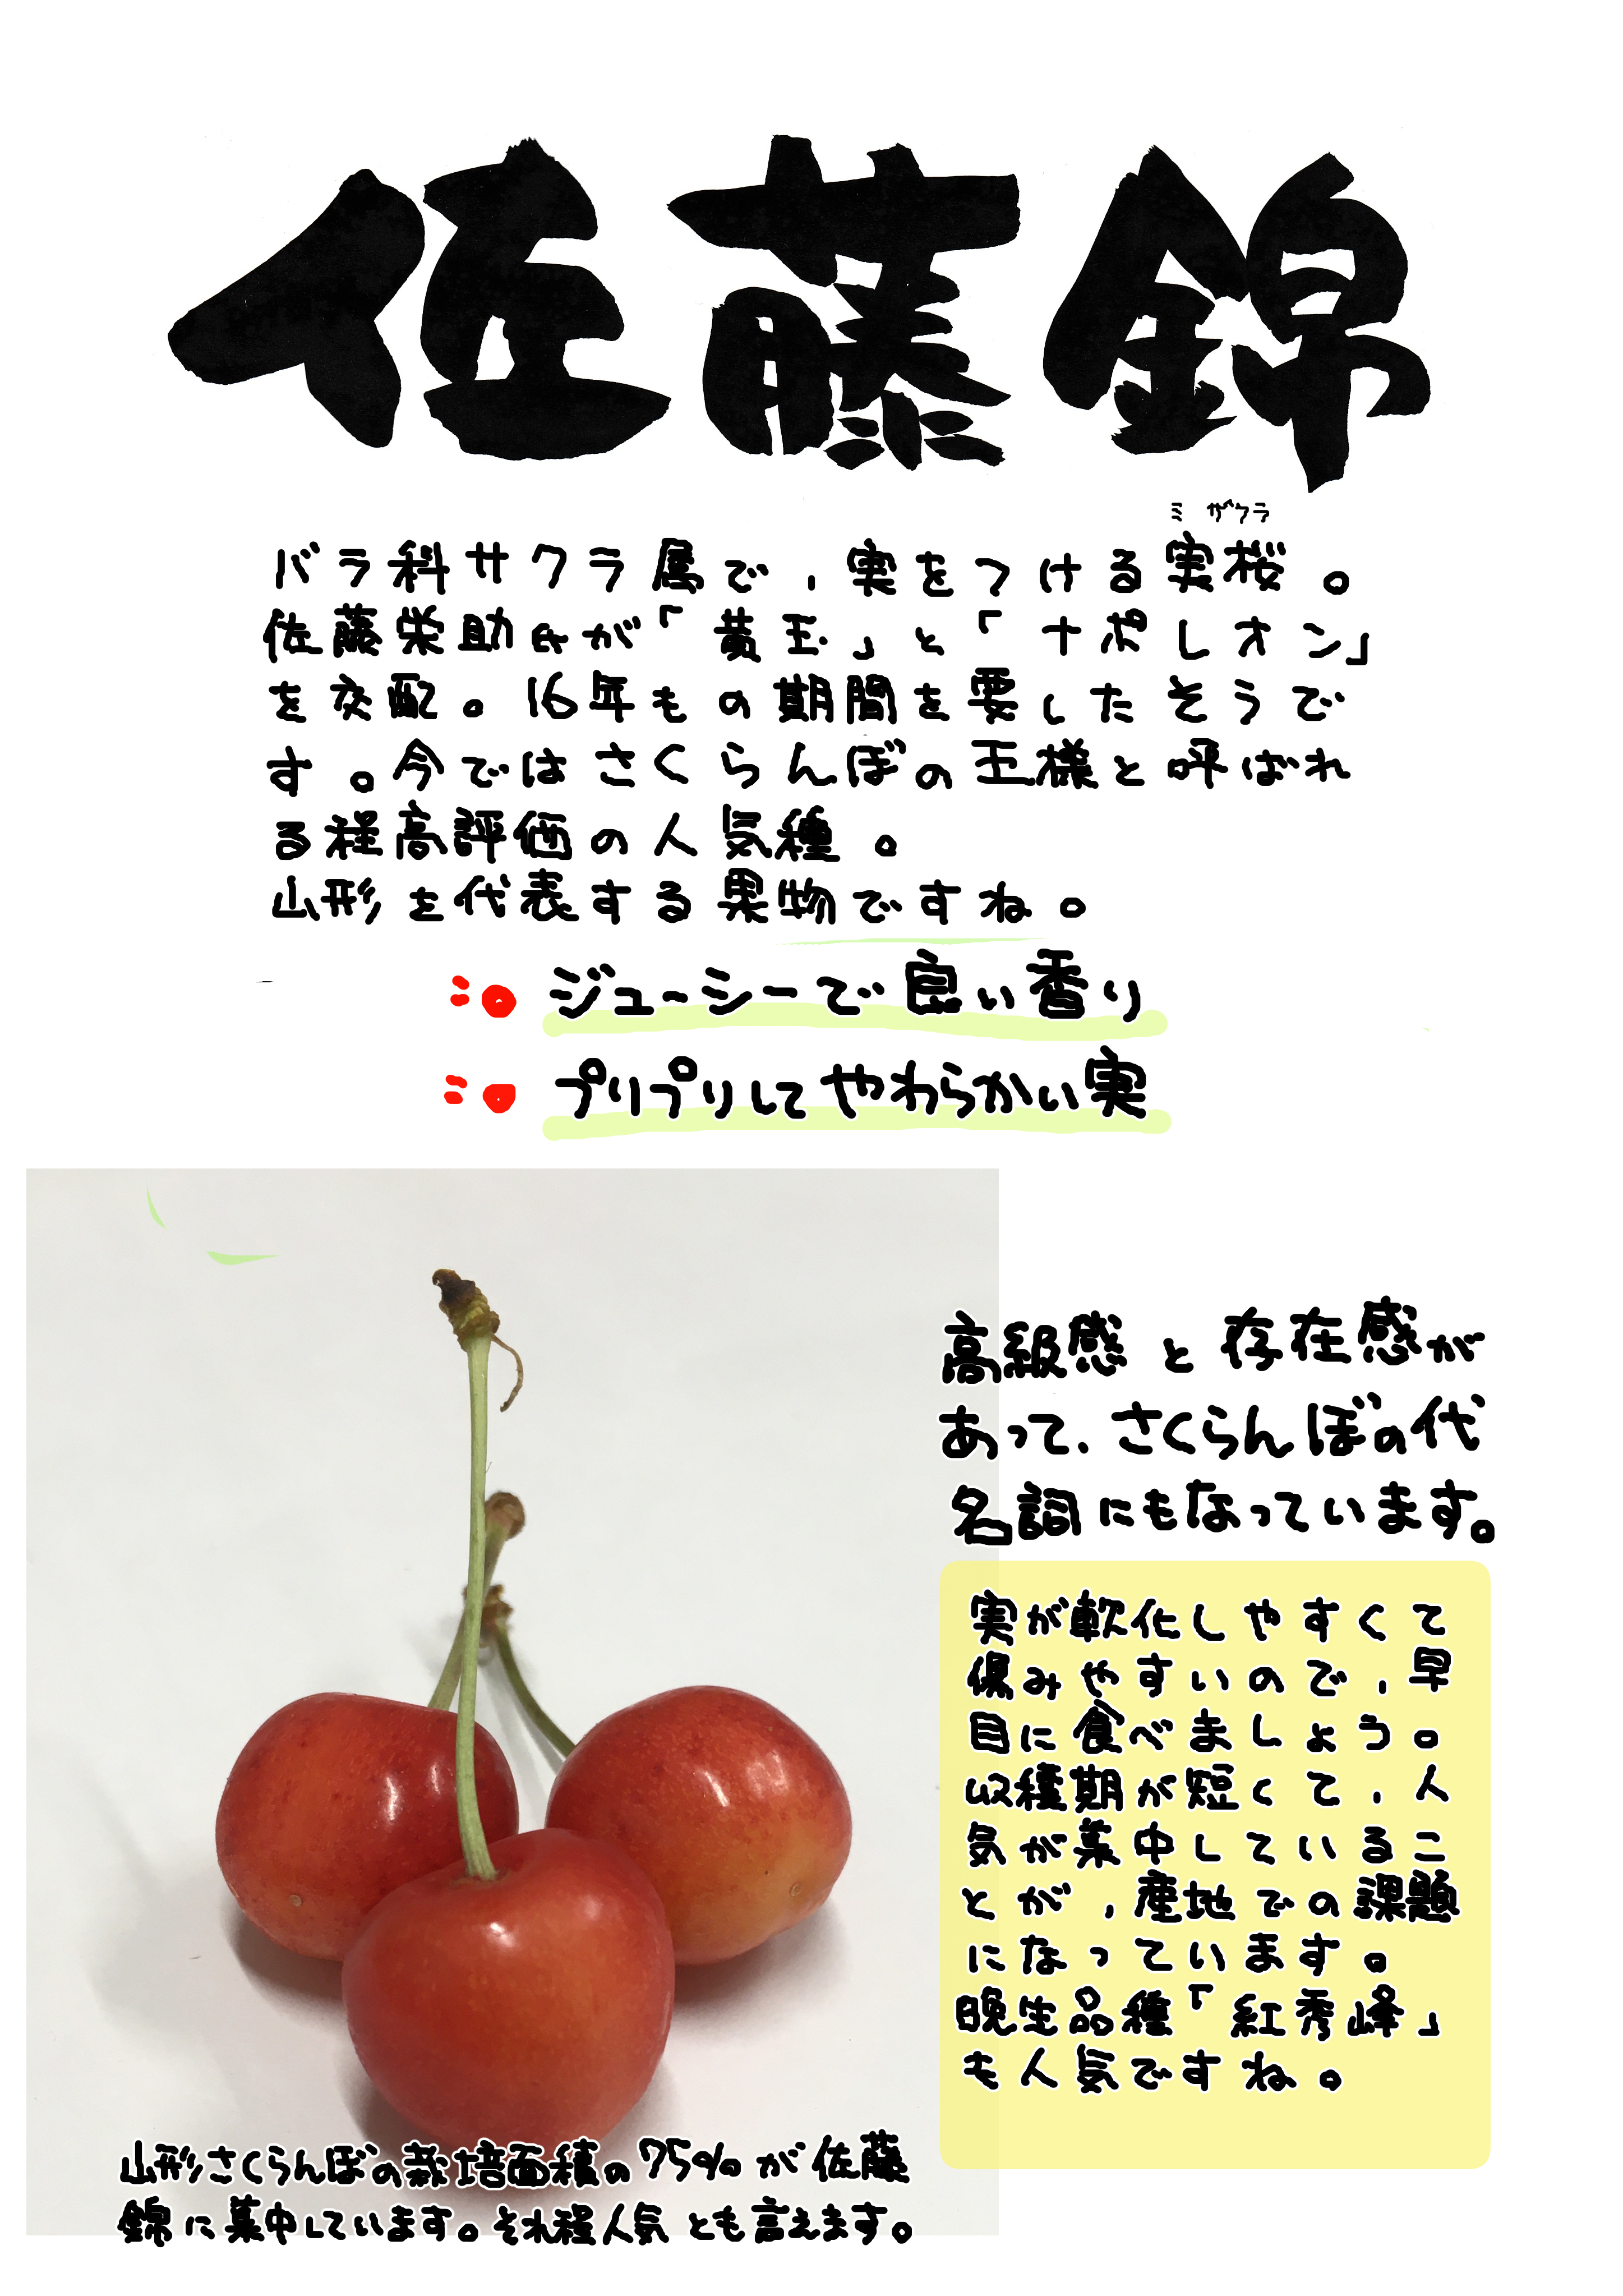 佐藤錦
ミザクラ
バラ科サクラ属で、実をつける実桜。
佐藤栄助氏が「黄玉」と「ナポレオン」
を交配。16年もの期間を要したそうで
す。今ではさくらんぼの王様と呼ばれ
る程高評価の人気種。
山形を代表する果物ですね。
ジューシーで良い香り
プリプリしてやわらかい実
高級感と存在感が
あって、さくらんぼの代
名詞にもなっています。
実が軟化しやすくて
傷みやすいので、早
目に食べましょう。
収穫期が短くて、人
気が集中しているこ
とが、産地での課題
になっています。
晩生品種「紅秀峰」
も人気ですね。
山形さくらんぼの栽培面積の75%が佐藤
錦に集中しています。それ程人気とも言えます。